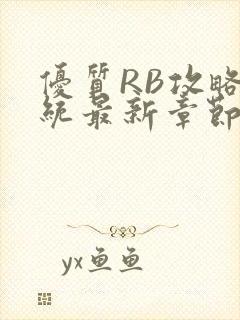 優質RB攻略
統最新章節
yx鱼鱼